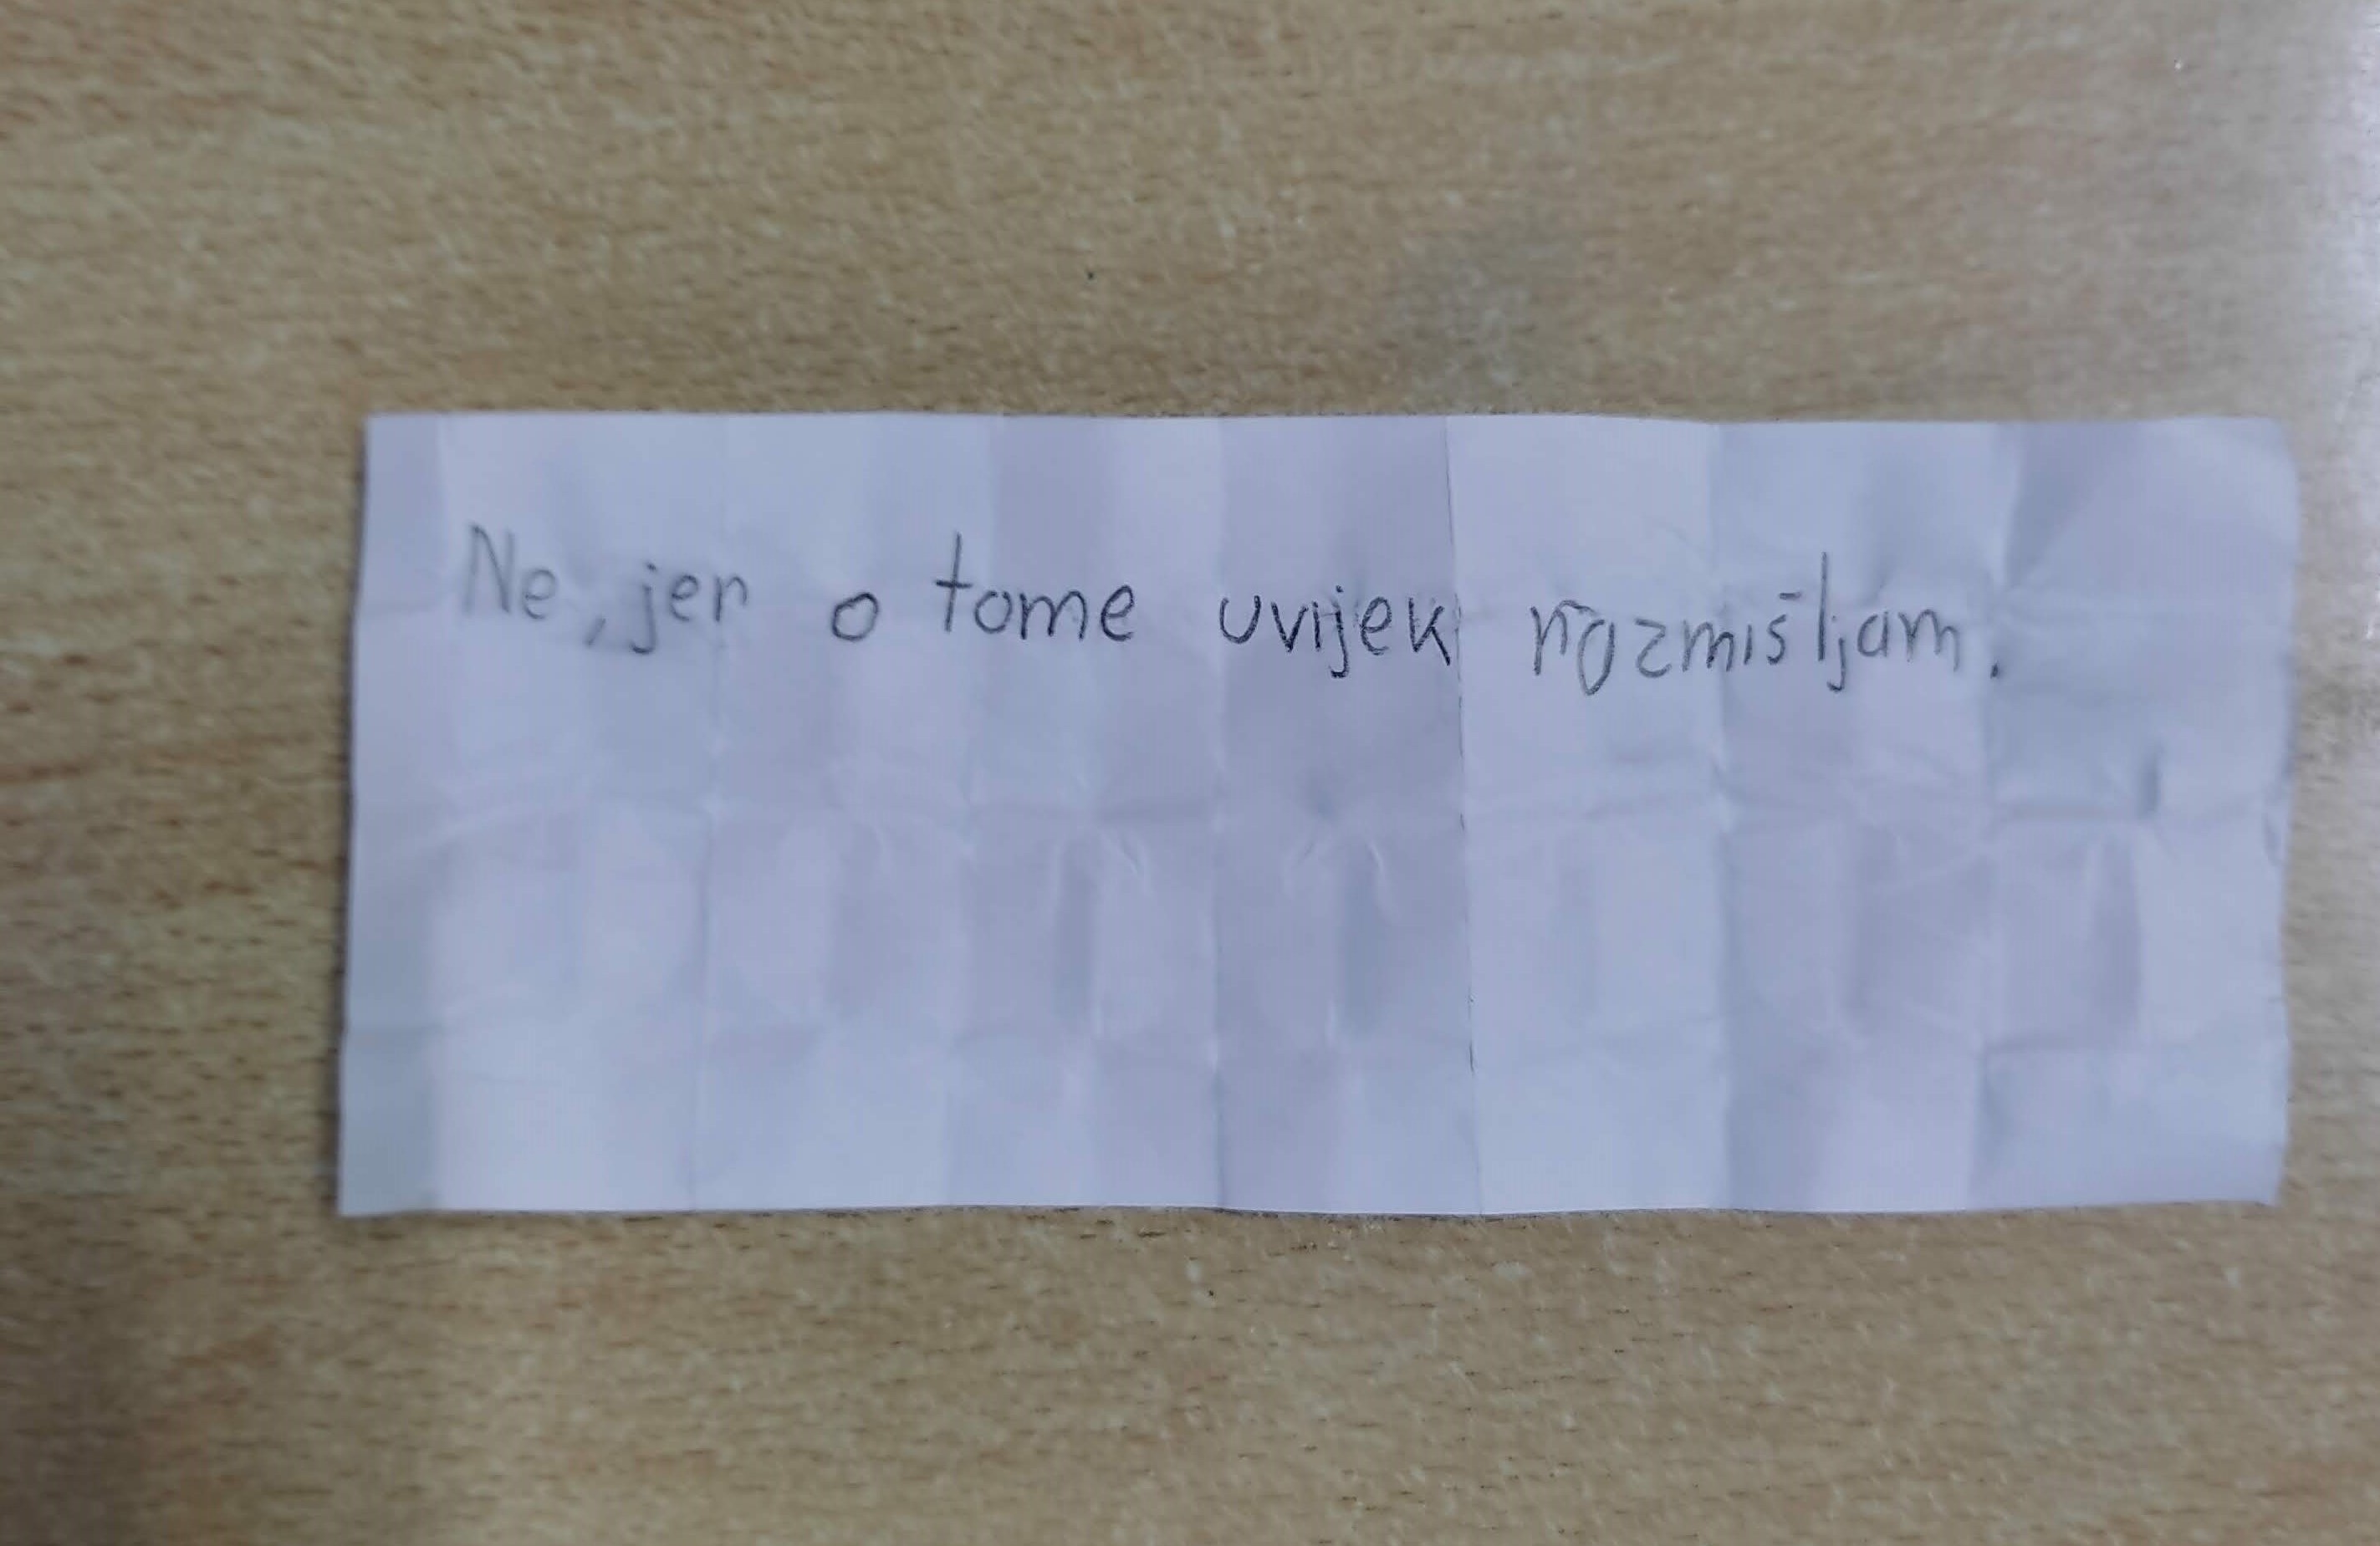 Ne, jer o tome uvijek razmišljam.